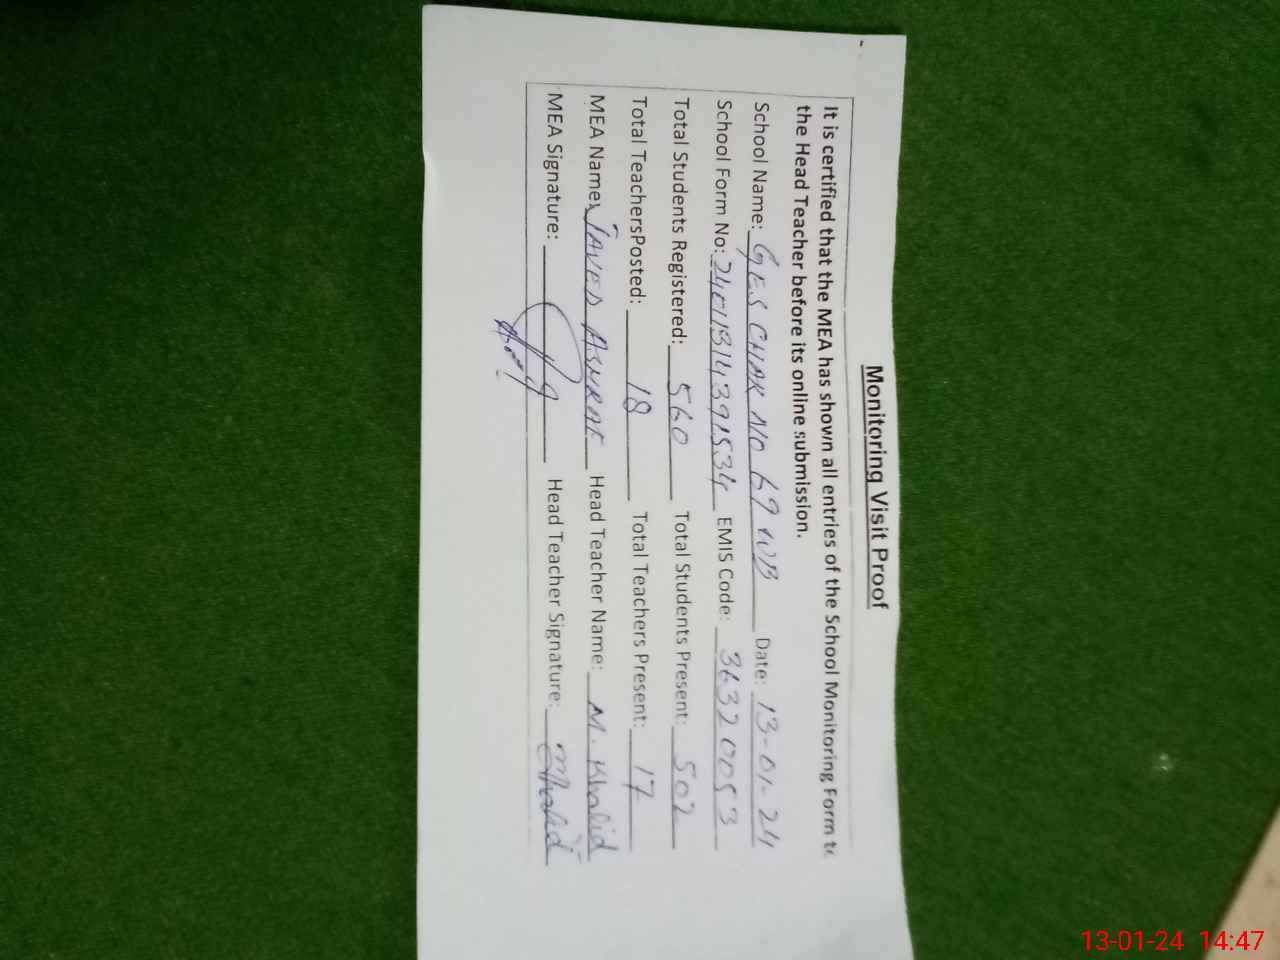 Monitoring Visit Proof
It is certified that the MEA has shown all entries of the School Monitoring Form to
the Head Teacher before its online submission.
School Name: GES CHAK NO 69 WB Date: 13-01-24
School Form No: EMIS Code: 36320053
Total Students Registered: 560 Total Students Present: 502
Total TeachersPosted: 18 Total Teachers Present: 17
MEA Name: JAVED ASHRAF Head Teacher Name: M. Khalid
MEA Signature: Head Teacher Signature: MKhalid
13-01-24 14:47